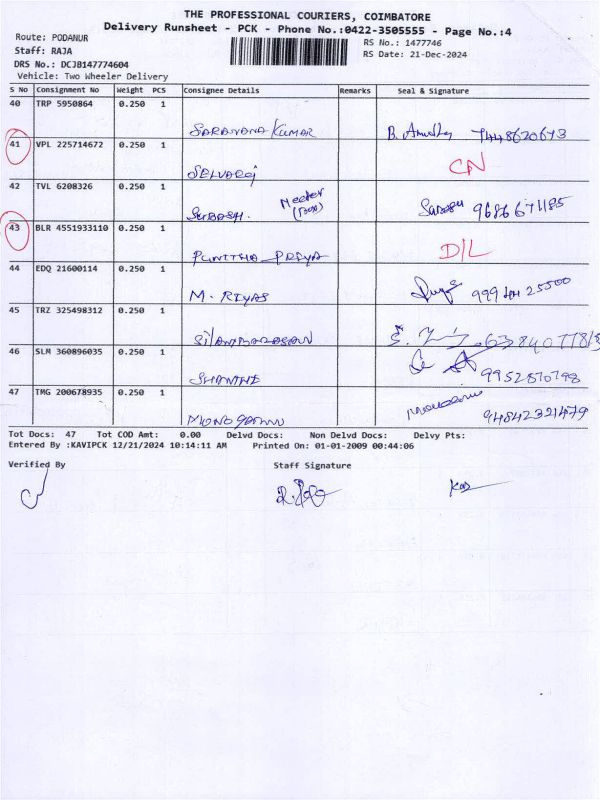 THE PROFESSIONAL COURIERS, COIMBATORE
Delivery Runsheet - PCK - Phone No.:0422-3505555 - Page No.:4
Route: PODANUR
RS No.: 1477746
Staff: RAJA
RS Date: 21-Dec-2024
DRS No.: DCJB147774604
Vehicle: Two Wheeler Delivery
S No Consignment No Weight PCS Consignee Details Remarks Seal & Signature
40 TRP 5950864 0.250 1
SARAVANA KUMAR
41 VPL 225714672 0.250 1
SELVARAJ CN
42 TVL 6208326 0.250 1
SUBASH. Meeter (Box) 9686671185
43 BLR 4551933110 0.250 1
PUNITHA PRIYA D/L
44 EDQ 21600114 0.250 1
M. RIYAS
45 TRZ 325498312 0.250 1
SILAMBARASAN
46 SLM 360896035 0.250 1
SHANTHI
47 TMG 200678935 0.250 1
94842321479
Tot Docs: 47 Tot COD Amt: 0.00 Delvd Docs: Non Delvd Docs: Delvy Pts:
Entered By :KAVIPCK 12/21/2024 10:14:11 AM Printed On: 01-01-2009 00:44:06
Verified By Staff Signature